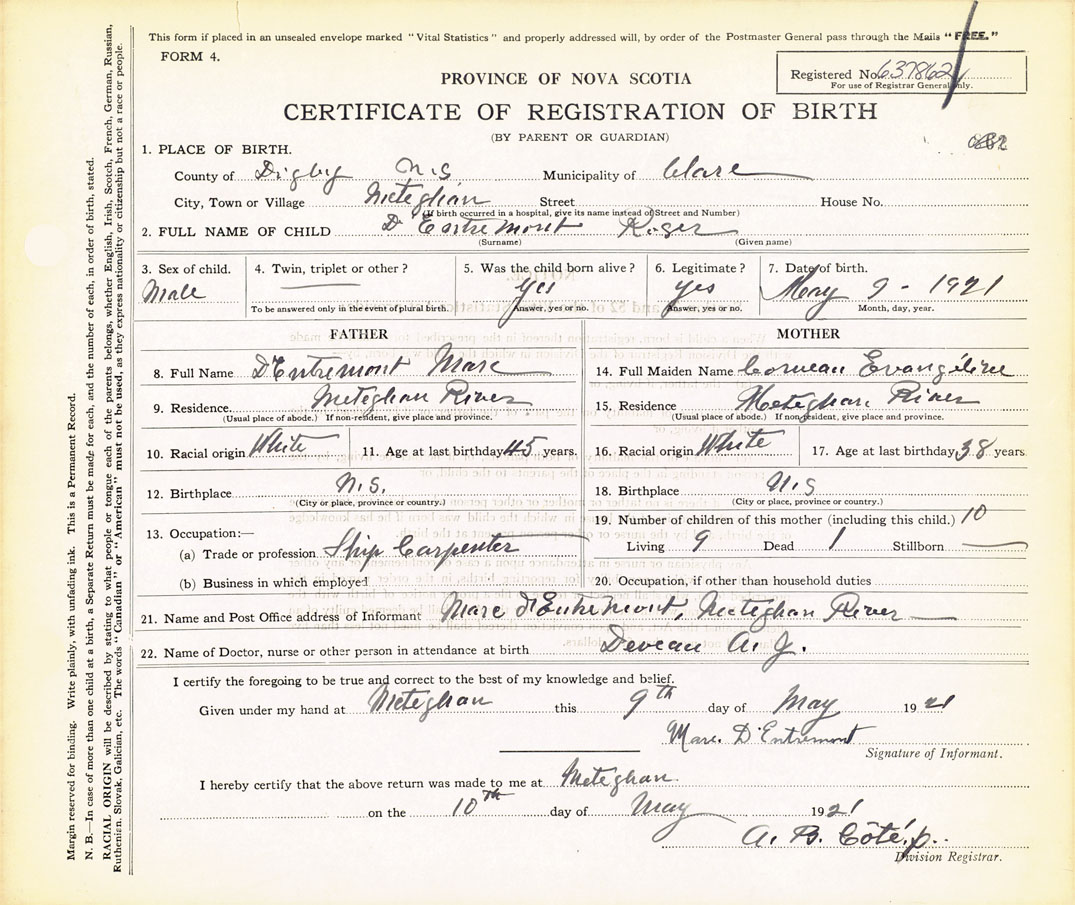 This form if placed in an unsealed envelope marked "Vital Statistics" and properly addressed will, by order of the Postmaster General pass through the Mails "FREE."
FORM 4.
Registered No. 6378624
For use of Registrar General only.
PROVINCE OF NOVA SCOTIA
CERTIFICATE OF REGISTRATION OF BIRTH
(BY PARENT OR GUARDIAN)
1. PLACE OF BIRTH.
County of Digby N.S Municipality of Clare
City, Town or Village Meteghan Street House No.
(If birth occurred in a hospital, give its name instead of Street and Number)
2. FULL NAME OF CHILD D'Entremont Roger
(Surname) (Given name)
3. Sex of child. 4. Twin, triplet or other? 5. Was the child born alive? 6. Legitimate? 7. Date of birth.
Male yes yes May 9 - 1921
To be answered only in the event of plural birth. Answer, yes or no. Answer, yes or no. Month, day, year.
FATHER
8. Full Name D'Entremont Marc
9. Residence Meteghan River
(Usual place of abode.) If non-resident, give place and province.
10. Racial origin White 11. Age at last birthday 45 years.
12. Birthplace N.S.
(City or place, province or country.)
13. Occupation:—
(a) Trade or profession Ship Carpenter
(b) Business in which employed
MOTHER
14. Full Maiden Name Comeau Evangéline
15. Residence Meteghan River
(Usual place of abode.) If non-resident, give place and province.
16. Racial origin White 17. Age at last birthday 38 years
18. Birthplace N.S
(City or place, province or country.)
19. Number of children of this mother (including this child.) 10
Living 9 Dead 1 Stillborn —
20. Occupation, if other than household duties
21. Name and Post Office address of Informant Marc d'Entremont, Meteghan River
22. Name of Doctor, nurse or other person in attendance at birth Deveau A. J.
I certify the foregoing to be true and correct to the best of my knowledge and belief.
Given under my hand at Meteghan this 9th day of May 1921
Marc D'Entremont
Signature of Informant.
I hereby certify that the above return was made to me at Meteghan
on the 10th day of May 1921
A. B. Côté, p.
Division Registrar.
Margin reserved for binding. Write plainly, with unfading ink. This is a Permanent Record.
N. B.—In case of more than one child at a birth, a Separate Return must be made for each, and the number of each, in order of birth, stated.
RACIAL ORIGIN will be described by stating to what people or tongue each of the parents belongs, whether English, Irish, Scotch, French, German, Russian,
Ruthenian, Slovak, Galician, etc. The words "Canadian" or "American" must not be used, as they express nationality or citizenship but not a race or people.